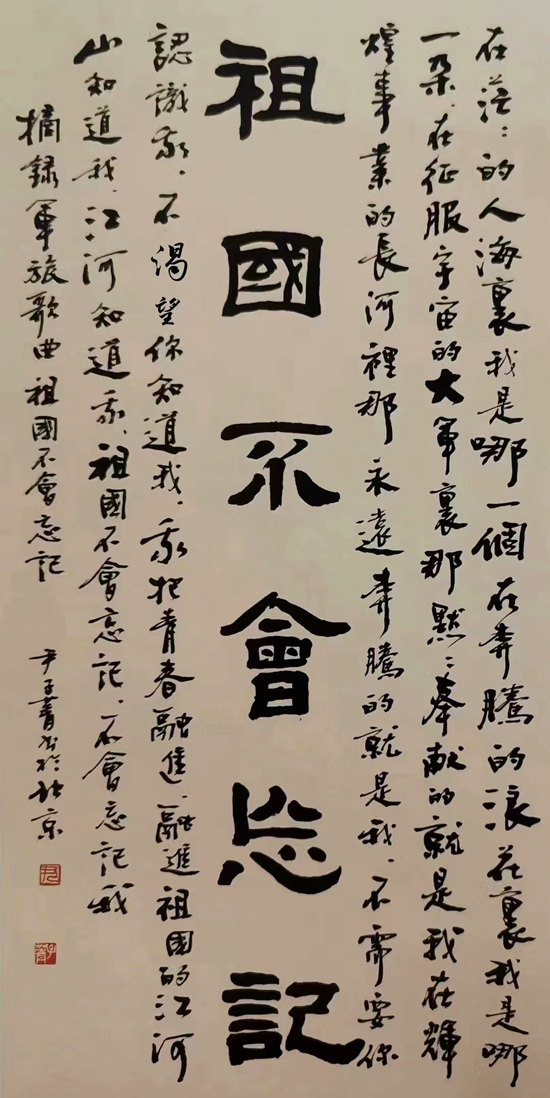 祖國不會忘記
在茫:的人海裏我是哪一個在奔騰的浪花裏我是哪
一朵、在征服宇宙的大軍裏那默:奉献的就是我在輝
煌事業的長河裡那永遠奔騰的就是我、不需要你
認識我、不渴望你知道我、我把青春融進、融進祖國的江河
山知道我、江河知道我、祖國不會忘記、不會忘記我
摘録軍旅歌曲祖國不會忘記
尹子青书於北京